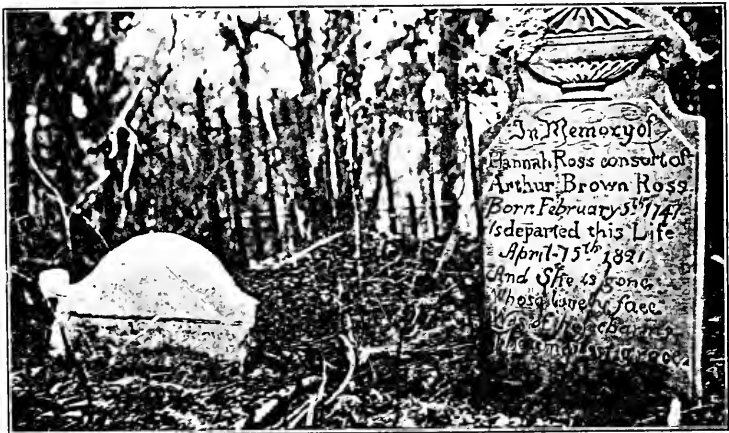 In Memory of
Hannah Ross consort of
Arthur Brown Ross
Born February 5th 1747
Is departed this Life
April 15th 1821
And She is gone
whose lovely face